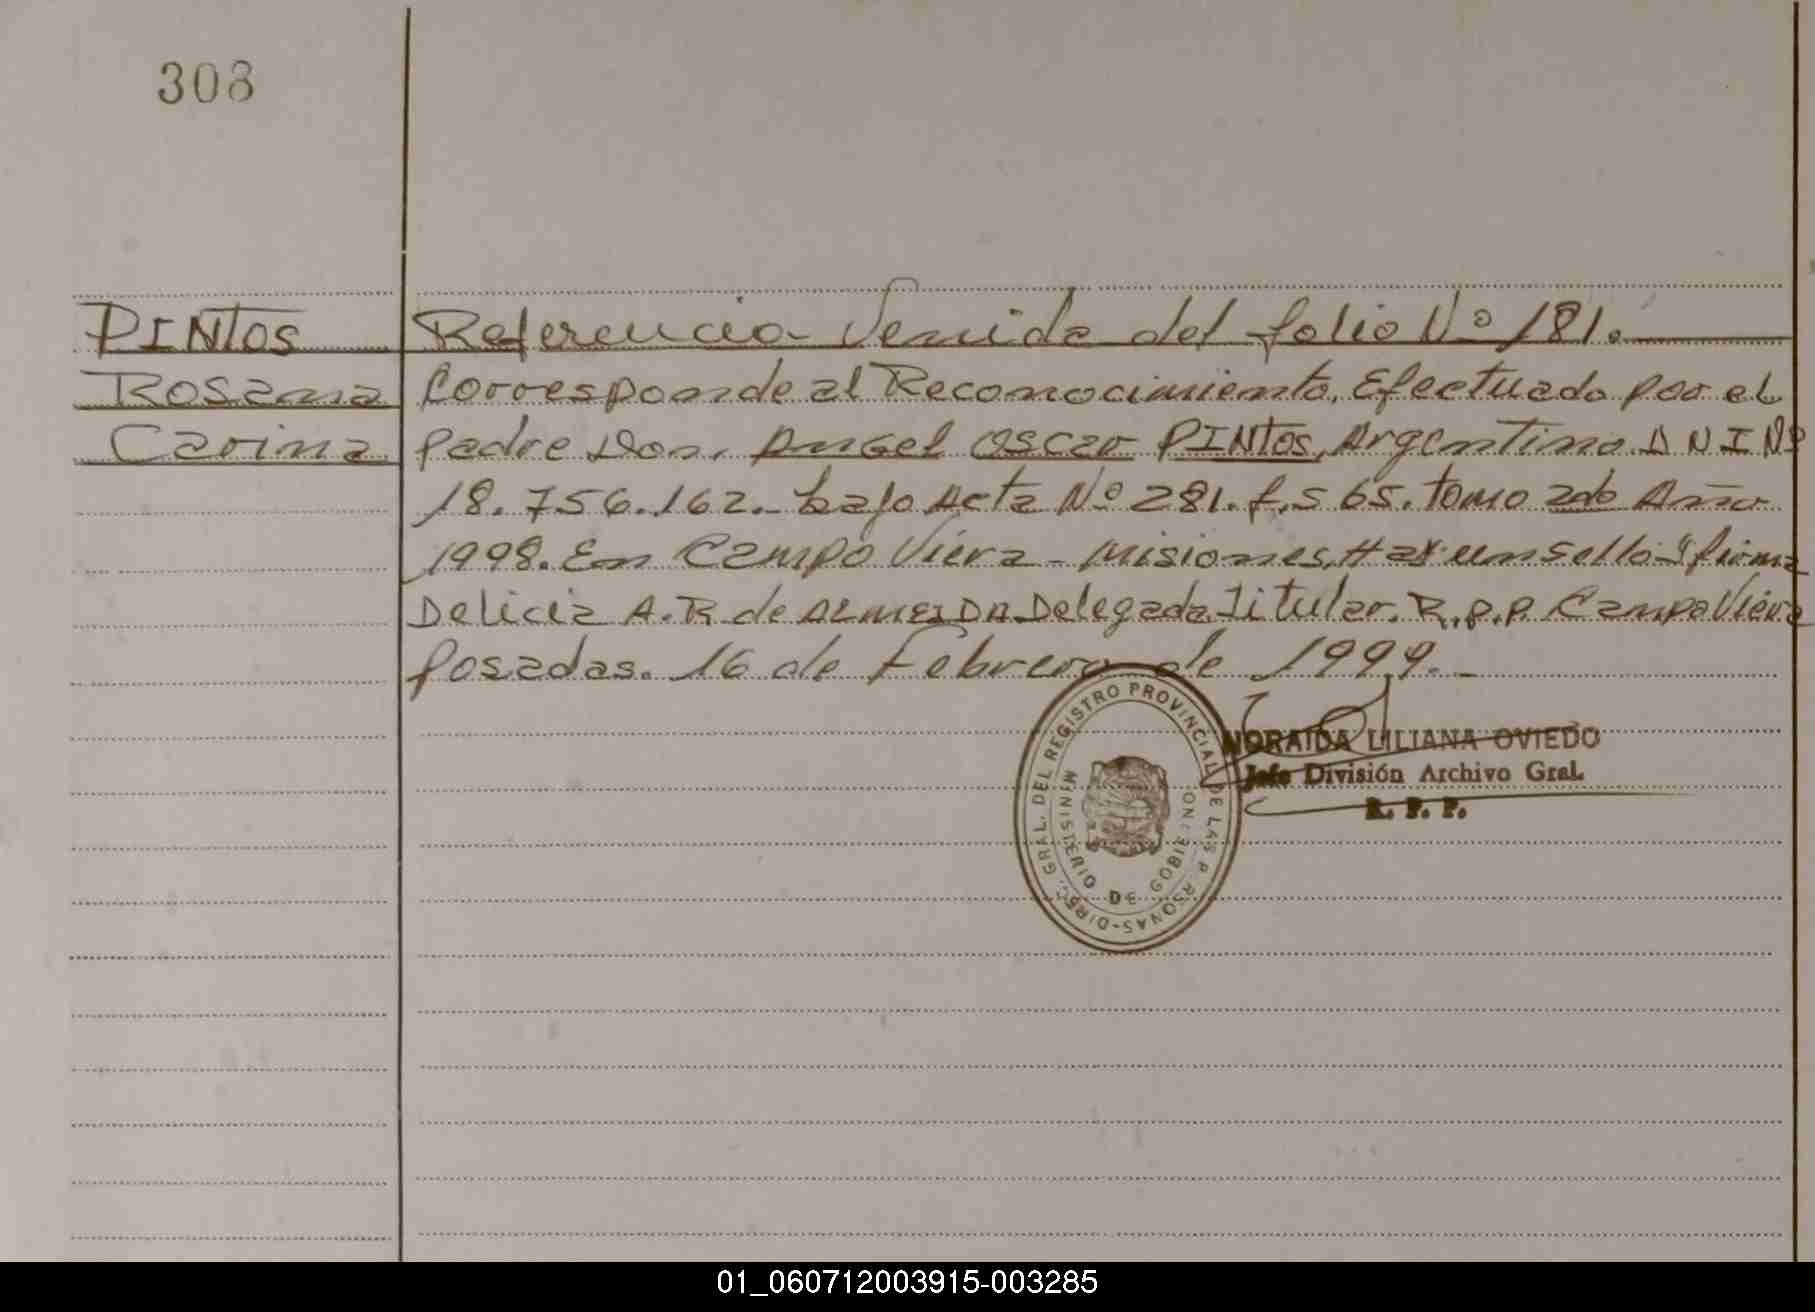 308
PINtos
Rosana
Carina
Referencia Venida del folio Nº 181.
Corresponde al Reconocimiento, Efectuado por el
padre Don. Angel Oscar PINtos, Argentino. D N I Nº
18.756.162.- bajo Acta Nº 281. f,s 65. tomo 2do Año
1998. En Campo Viera - Misiones, Hay un sello y firma
Delicia A. R de ALMEIDA Delegada Titular. R.P.P. Campo Viera
Posadas. 16 de Febrero de 1999.-
DIREC. GRAL. DEL REGISTRO PROVINCIAL DE LAS P RSONAS-
MINISTERIO DE GOBIERNO
NORAIDA LILIANA OVIEDO
Jefe División Archivo Gral.
R. P. P.
01_060712003915-003285